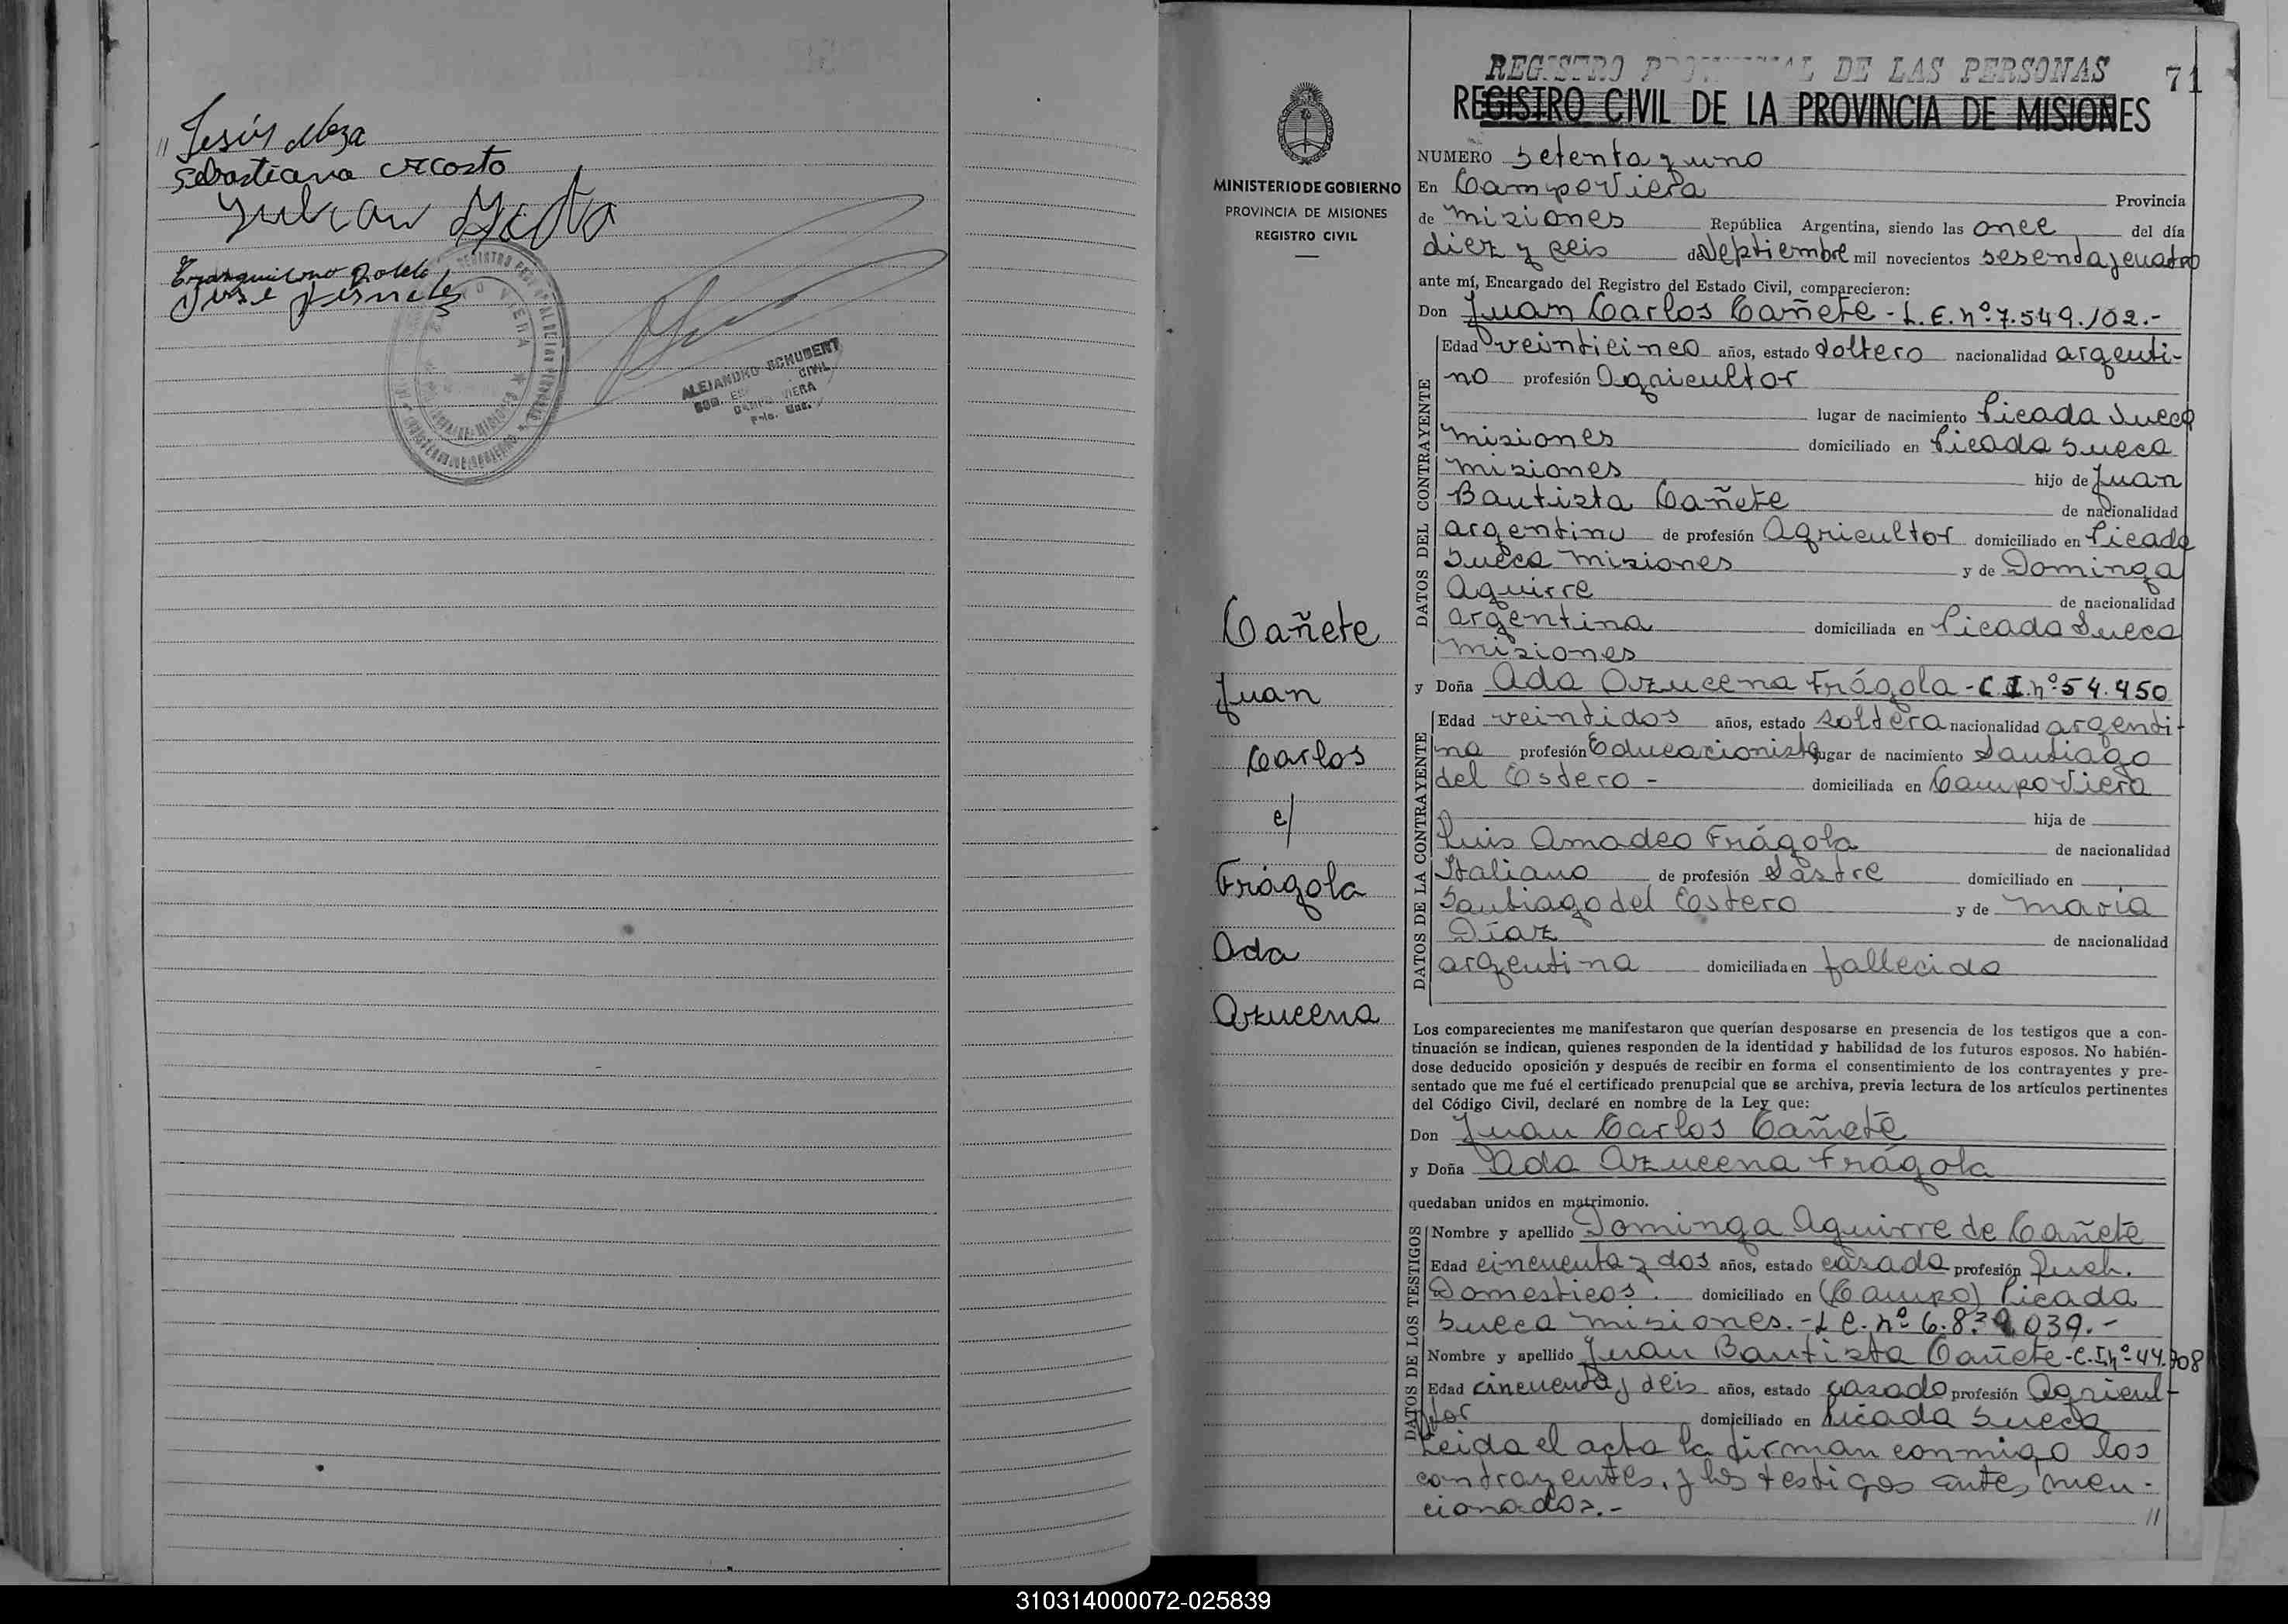 " Jesús Meza
Sebastiana Acosta
Julian
Tranquilino
Jose
ALEJANDRO SCHUBERT
CIVIL
CAMPO VIERA
REGISTRO PROVINCIAL DE LAS PERSONAS
71
REGISTRO CIVIL DE LA PROVINCIA DE MISIONES
MINISTERIO DE GOBIERNO
PROVINCIA DE MISIONES
REGISTRO CIVIL
Cañete
Juan
Carlos
c/
Frágola
Ada
Azucena
NUMERO Setenta y uno
En Campo Viera Provincia
de Misiones República Argentina, siendo las once del día
diez y seis de Septiembre mil novecientos sesenta y cuatro
ante mí, Encargado del Registro del Estado Civil, comparecieron:
Don Juan Carlos Cañete - L.E. nº 7.549.102.-
DATOS DEL CONTRAYENTE
Edad veinticinco años, estado Soltero nacionalidad argenti-
no profesión Agricultor
lugar de nacimiento Picada Sueca
Misiones domiciliado en Picada Sueca
Misiones hijo de Juan
Bautista Cañete de nacionalidad
argentino de profesión Agricultor domiciliado en Picada
Sueca Misiones y de Dominga
Aguirre de nacionalidad
argentina domiciliada en Picada Sueca
Misiones
y Doña Ada Azucena Frágola - C.I. nº 54.450
DATOS DE LA CONTRAYENTE
Edad veintidos años, estado soltera nacionalidad argenti-
na profesión Educacionista lugar de nacimiento Santiago
del Estero - domiciliada en Campo Viera
hija de
Luis Amadeo Frágola de nacionalidad
Italiano de profesión Sastre domiciliado en
Santiago del Estero y de María
Díaz de nacionalidad
argentina domiciliada en fallecida
Los comparecientes me manifestaron que querían desposarse en presencia de los testigos que a con-
tinuación se indican, quienes responden de la identidad y habilidad de los futuros esposos. No habién-
dose deducido oposición y después de recibir en forma el consentimiento de los contrayentes y pre-
sentado que me fué el certificado prenupcial que se archiva, previa lectura de los artículos pertinentes
del Código Civil, declaré en nombre de la Ley que:
Don Juan Carlos Cañete
y Doña Ada Azucena Frágola
quedaban unidos en matrimonio.
DATOS DE LOS TESTIGOS
Nombre y apellido Dominga Aguirre de Cañete
Edad cincuenta y dos años, estado casada profesión Queh.
Domesticos. domiciliado en (Campo) Picada
Sueca Misiones. - L.C. nº 039.-
Nombre y apellido Juan Bautista Cañete - C.I. nº 44.908
Edad cincuenta y seis años, estado casado profesión Agricul-
tor domiciliado en Picada Sueca
Leida el acta la firman conmigo los
contrayentes, y los testigos antes men-
cionados.-
//
310314000072-025839